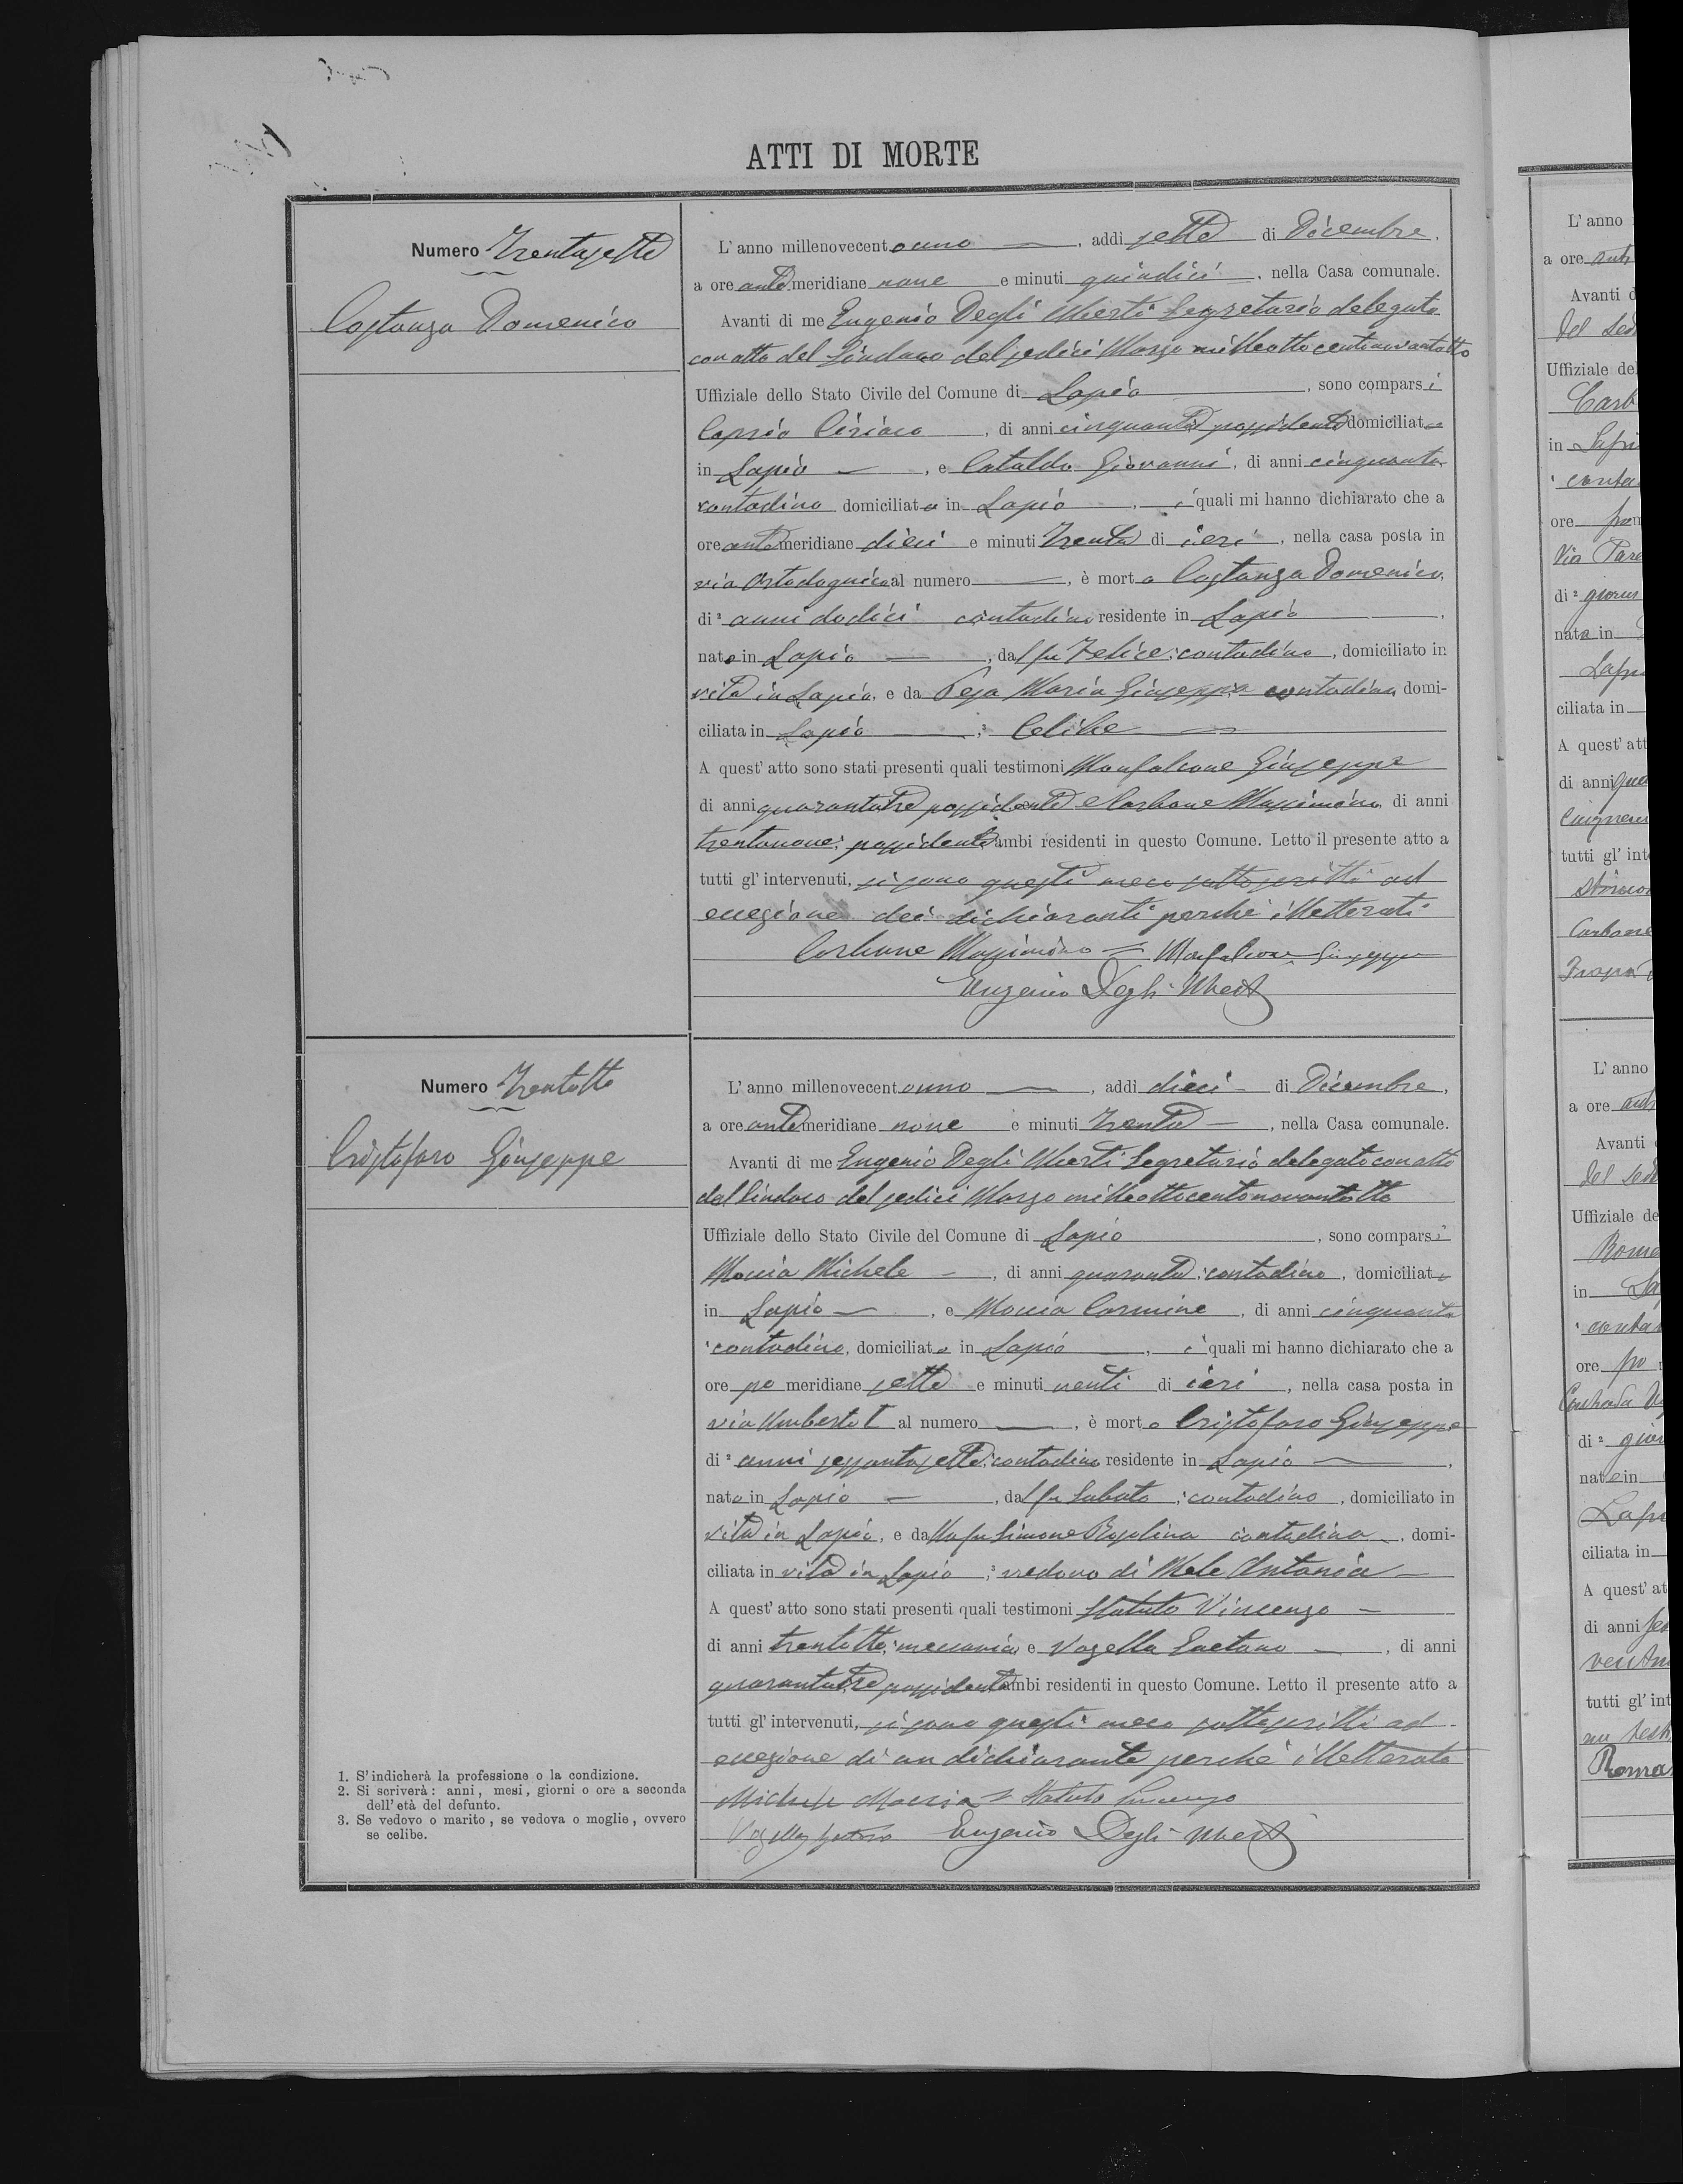 ATTI DI MORTE
Numero Trentasette
Costanza Domenico
L' anno millenovecento uno, addì sette di Dicembre,
a ore antemeridiane nove e minuti quindici, nella Casa comunale.
Avanti di me Eugenio Degli Uberti Segretario delegato
con atto del Sindaco del sedici Marzo milleottocentonovantotto
Uffiziale dello Stato Civile del Comune di Lapio, sono comparsi
Caprio Ciriaco, di anni cinquanta possidente domiciliato
in Lapio, e Cataldo Giovanni, di anni cinquanta
contadino domiciliato in Lapio, i quali mi hanno dichiarato che a
ore antemeridiane dieci e minuti trenta di ieri, nella casa posta in
via al numero, è morto Costanza Domenico,
di 2 anni dodici contadino residente in Lapio,
nato in Lapio, dal fu Felice, contadino, domiciliato in
vita in Lapio, e da Pepa Maria Giuseppa contadina, domi-
ciliata in Lapio, 3 Celibe
A quest' atto sono stati presenti quali testimoni Monfalcone Giuseppe
di anni quarantatre possidente e Carbone Massimino, di anni
trentanove, possidente ambi residenti in questo Comune. Letto il presente atto a
tutti gl' intervenuti, si sono questi meco sottoscritti ad
eccezione dei dichiaranti perchè illetterati
Carbone Massimino = Monfalcone Giuseppe
Eugenio Degli Uberti
Numero Trentotto
Cristofaro Giuseppe
L' anno millenovecento uno, addì dieci di Dicembre,
a ore antemeridiane nove e minuti trenta, nella Casa comunale.
Avanti di me Eugenio Degli Uberti Segretario delegato con atto
del Sindaco del sedici Marzo milleottocentonovantotto
Uffiziale dello Stato Civile del Comune di Lapio, sono comparsi
Moccia Michele, di anni quaranta, contadino, domiciliato
in Lapio, e Moccia Carmine, di anni cinquanta
contadino, domiciliato in Lapio, i quali mi hanno dichiarato che a
ore pomeridiane sette e minuti venti di ieri, nella casa posta in
via Umberto I al numero, è morto Cristofaro Giuseppe
di 2 anni sessantasette, contadino residente in Lapio,
nato in Lapio, dal fu Sabato, contadino, domiciliato in
vita in Lapio, e dalla fu Simone Rosolina contadina, domi-
ciliata in vita in Lapio, 3 vedovo di Mele Antonia
A quest' atto sono stati presenti quali testimoni Statuto Vincenzo
di anni trentotto, e Vozella Gaetano, di anni
quarantatre possidente ambi residenti in questo Comune. Letto il presente atto a
tutti gl' intervenuti, si sono questi meco sottoscritti ad
eccezione di un dichiarante perchè illetterato
Michele Moccia = Statuto Vincenzo
Vozella Gaetano Eugenio Degli Uberti
1. S' indicherà la professione o la condizione.
2. Si scriverà: anni, mesi, giorni o ore a seconda
dell' età del defunto.
3. Se vedovo o marito, se vedova o moglie, ovvero
se celibe.
L' anno
a ore
Avanti
Uffiziale de
in
ore
via
di 2 giorni
nato in
ciliata in
A quest' att
di anni
tutti gl' int
Carbone
L' anno
a ore
Avanti
Uffiziale de
in
ore po
Contrada
di 2
nato in
ciliata in
A quest' at
di anni
tutti gl' int